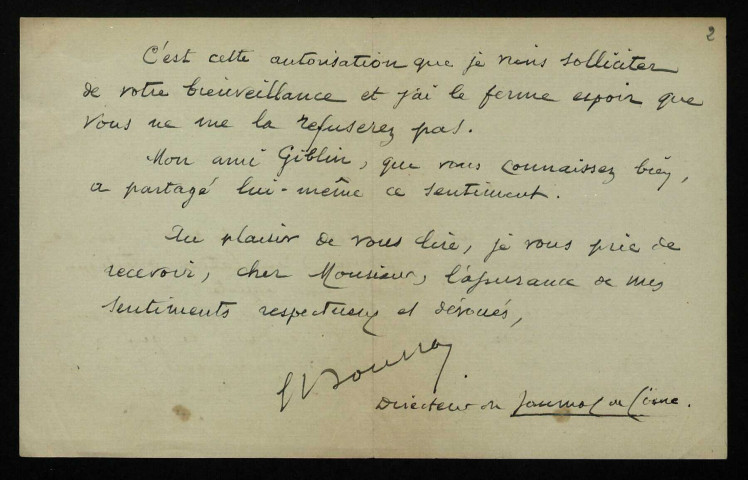 2
C'est cette autorisation que je viens solliciter
de votre bienveillance et j'ai le ferme espoir que
vous ne me la refuserez pas.
Mon ami Giblin, que vous connaissez bien,
a partagé lui-même ce sentiment.
Au plaisir de vous lire, je vous prie de
recevoir, cher Monsieur, l'assurance de mes
sentiments respectueux et dévoués,
Directeur du Journal de